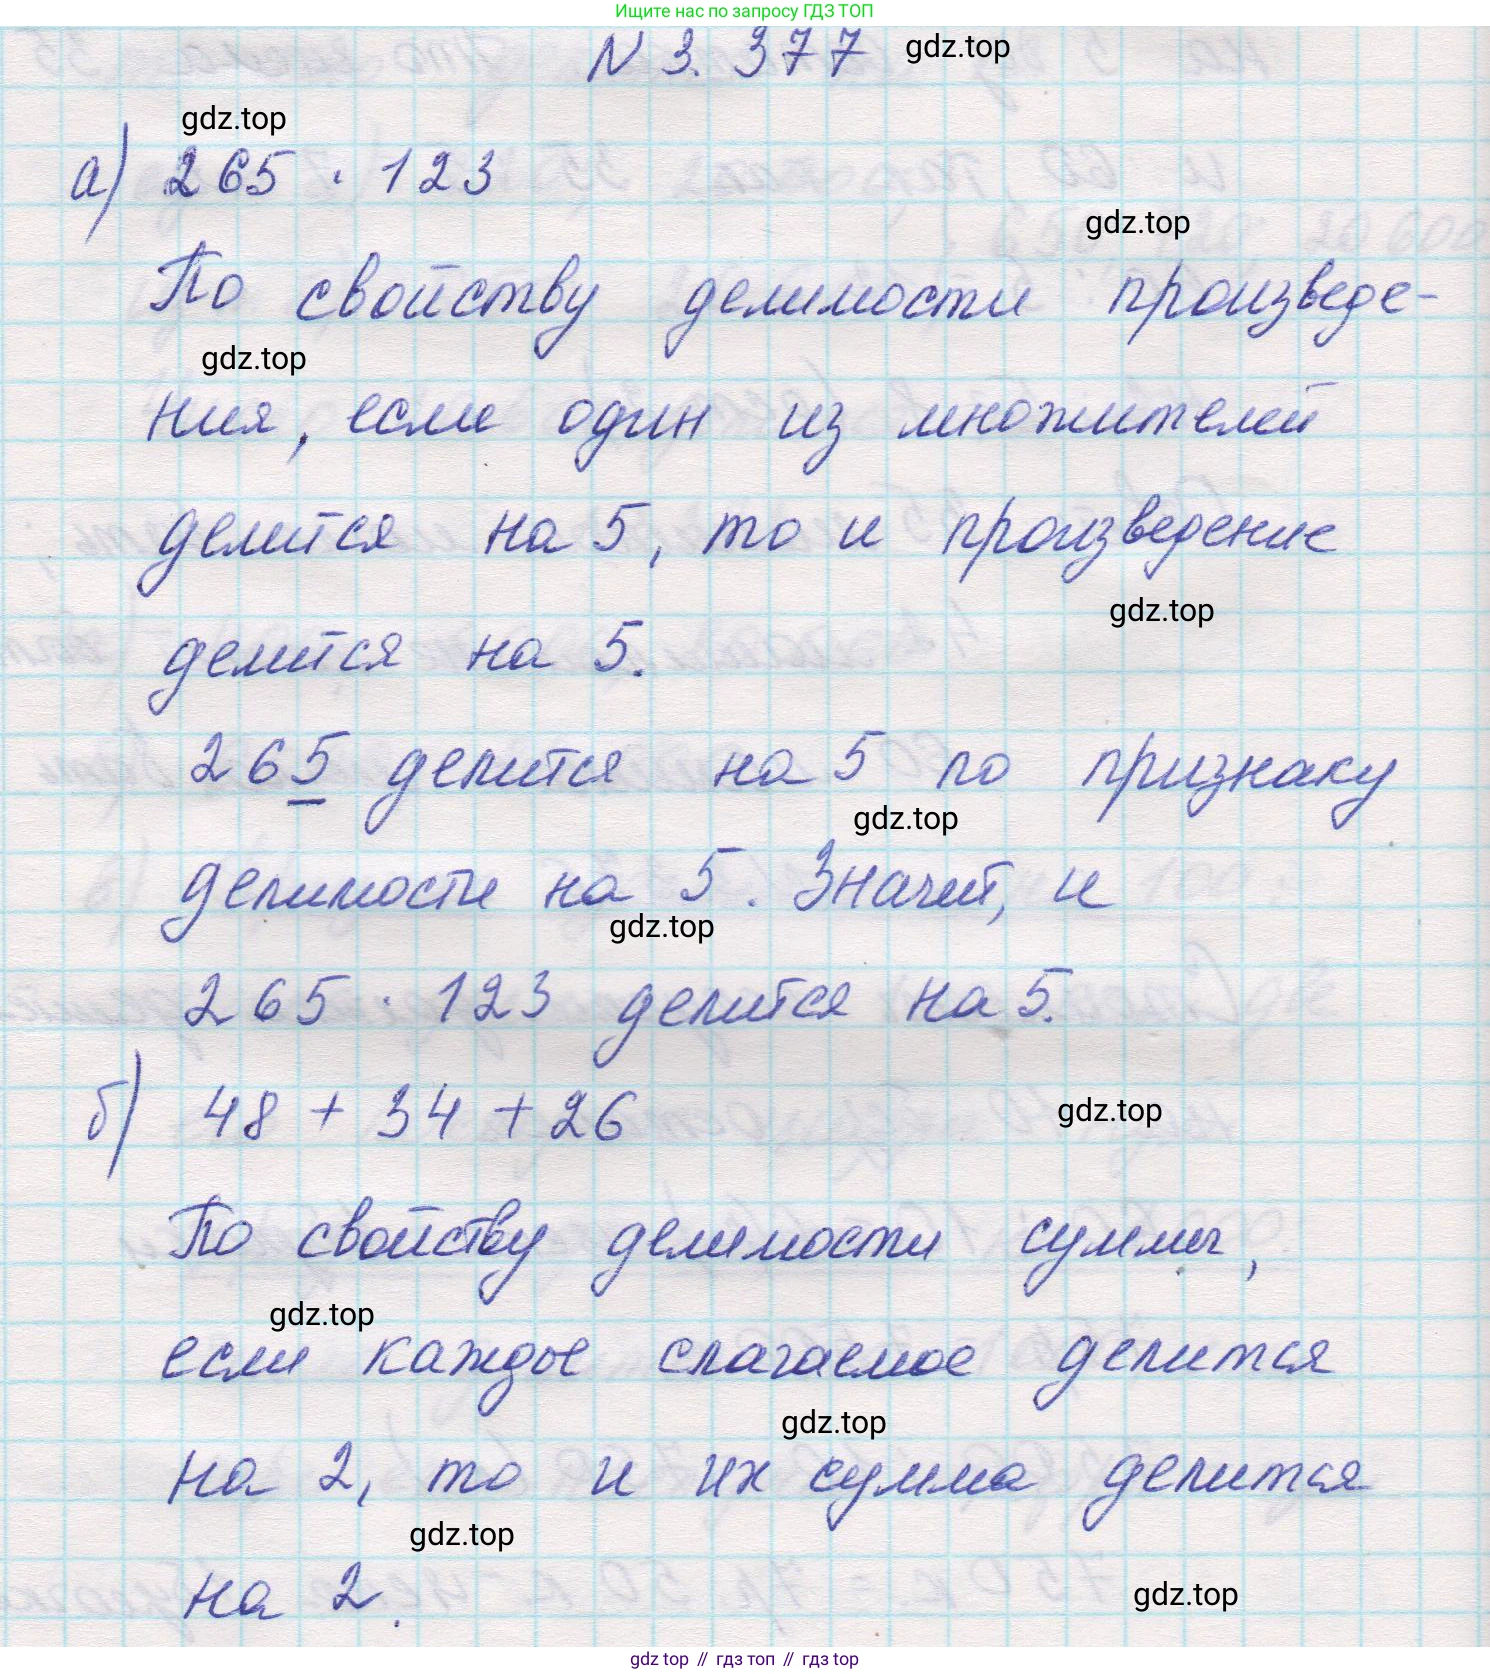 Ищите нас по запросу ГДЗ ТОП
N 3. 377 gdz.top
gdz.top
а) 265 · 123
gdz.top
По свойству делимости произведе-
gdz.top
ния, если один из множителей
делится на 5, то и произведение
gdz.top
делится на 5.
265 делится на 5 по признаку
gdz.top
делимости на 5. Значит, и
gdz.top
265 · 123 делится на 5.
б) 48 + 34 + 26
gdz.top
По свойству делимости суммы,
gdz.top
если каждое слагаемое делится
gdz.top
на 2, то и их сумма делится
gdz.top
на 2.
gdz.top
gdz top // гдз топ // гдз top